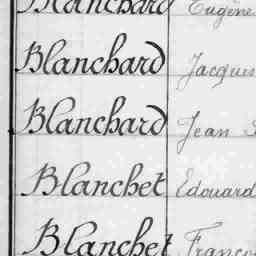 Blanchard Eugène
Blanchard Jacques
Blanchard Jean
Blanchet Edouard
Blanchet